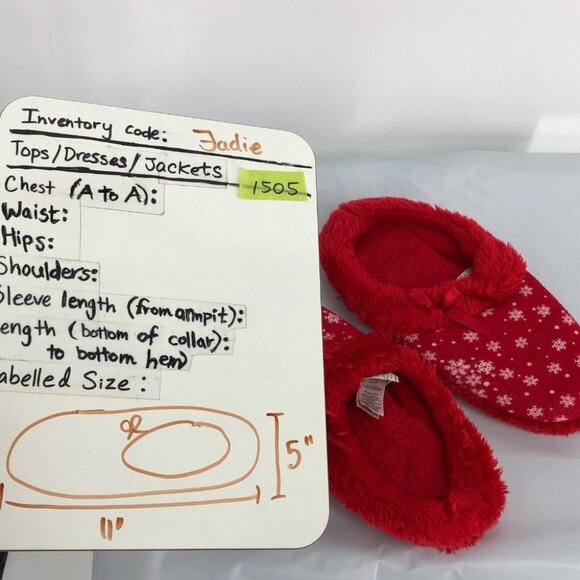 Inventory code: Jadie
Tops/Dresses/Jackets
1505
Chest (A to A):
Waist:
Hips:
Shoulders:
Sleeve length (from armpit):
ength (bottom of collar):
to bottom hem)
abelled Size:
5"
11"